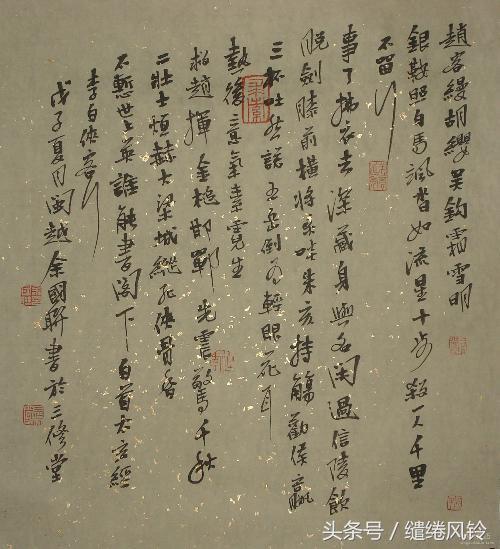 趙客縵胡纓吳鉤霜雪明
銀鞍照白馬颯沓如流星十步殺一人千里
不留行
事了拂衣去深藏身與名閑過信陵飲
脫劍膝前橫將炙啖朱亥持觴勸侯嬴
三杯吐然諾五岳倒為輕眼花耳
熱後意氣素霓生
救趙揮金槌邯鄲先震驚千秋
二壯士烜赫大梁城縱死俠骨香
不慙世上英誰能書閣下白首太玄經
李白俠客行
戊子夏月閩越余國聯書於三修堂
头条号 / 缱绻风铃